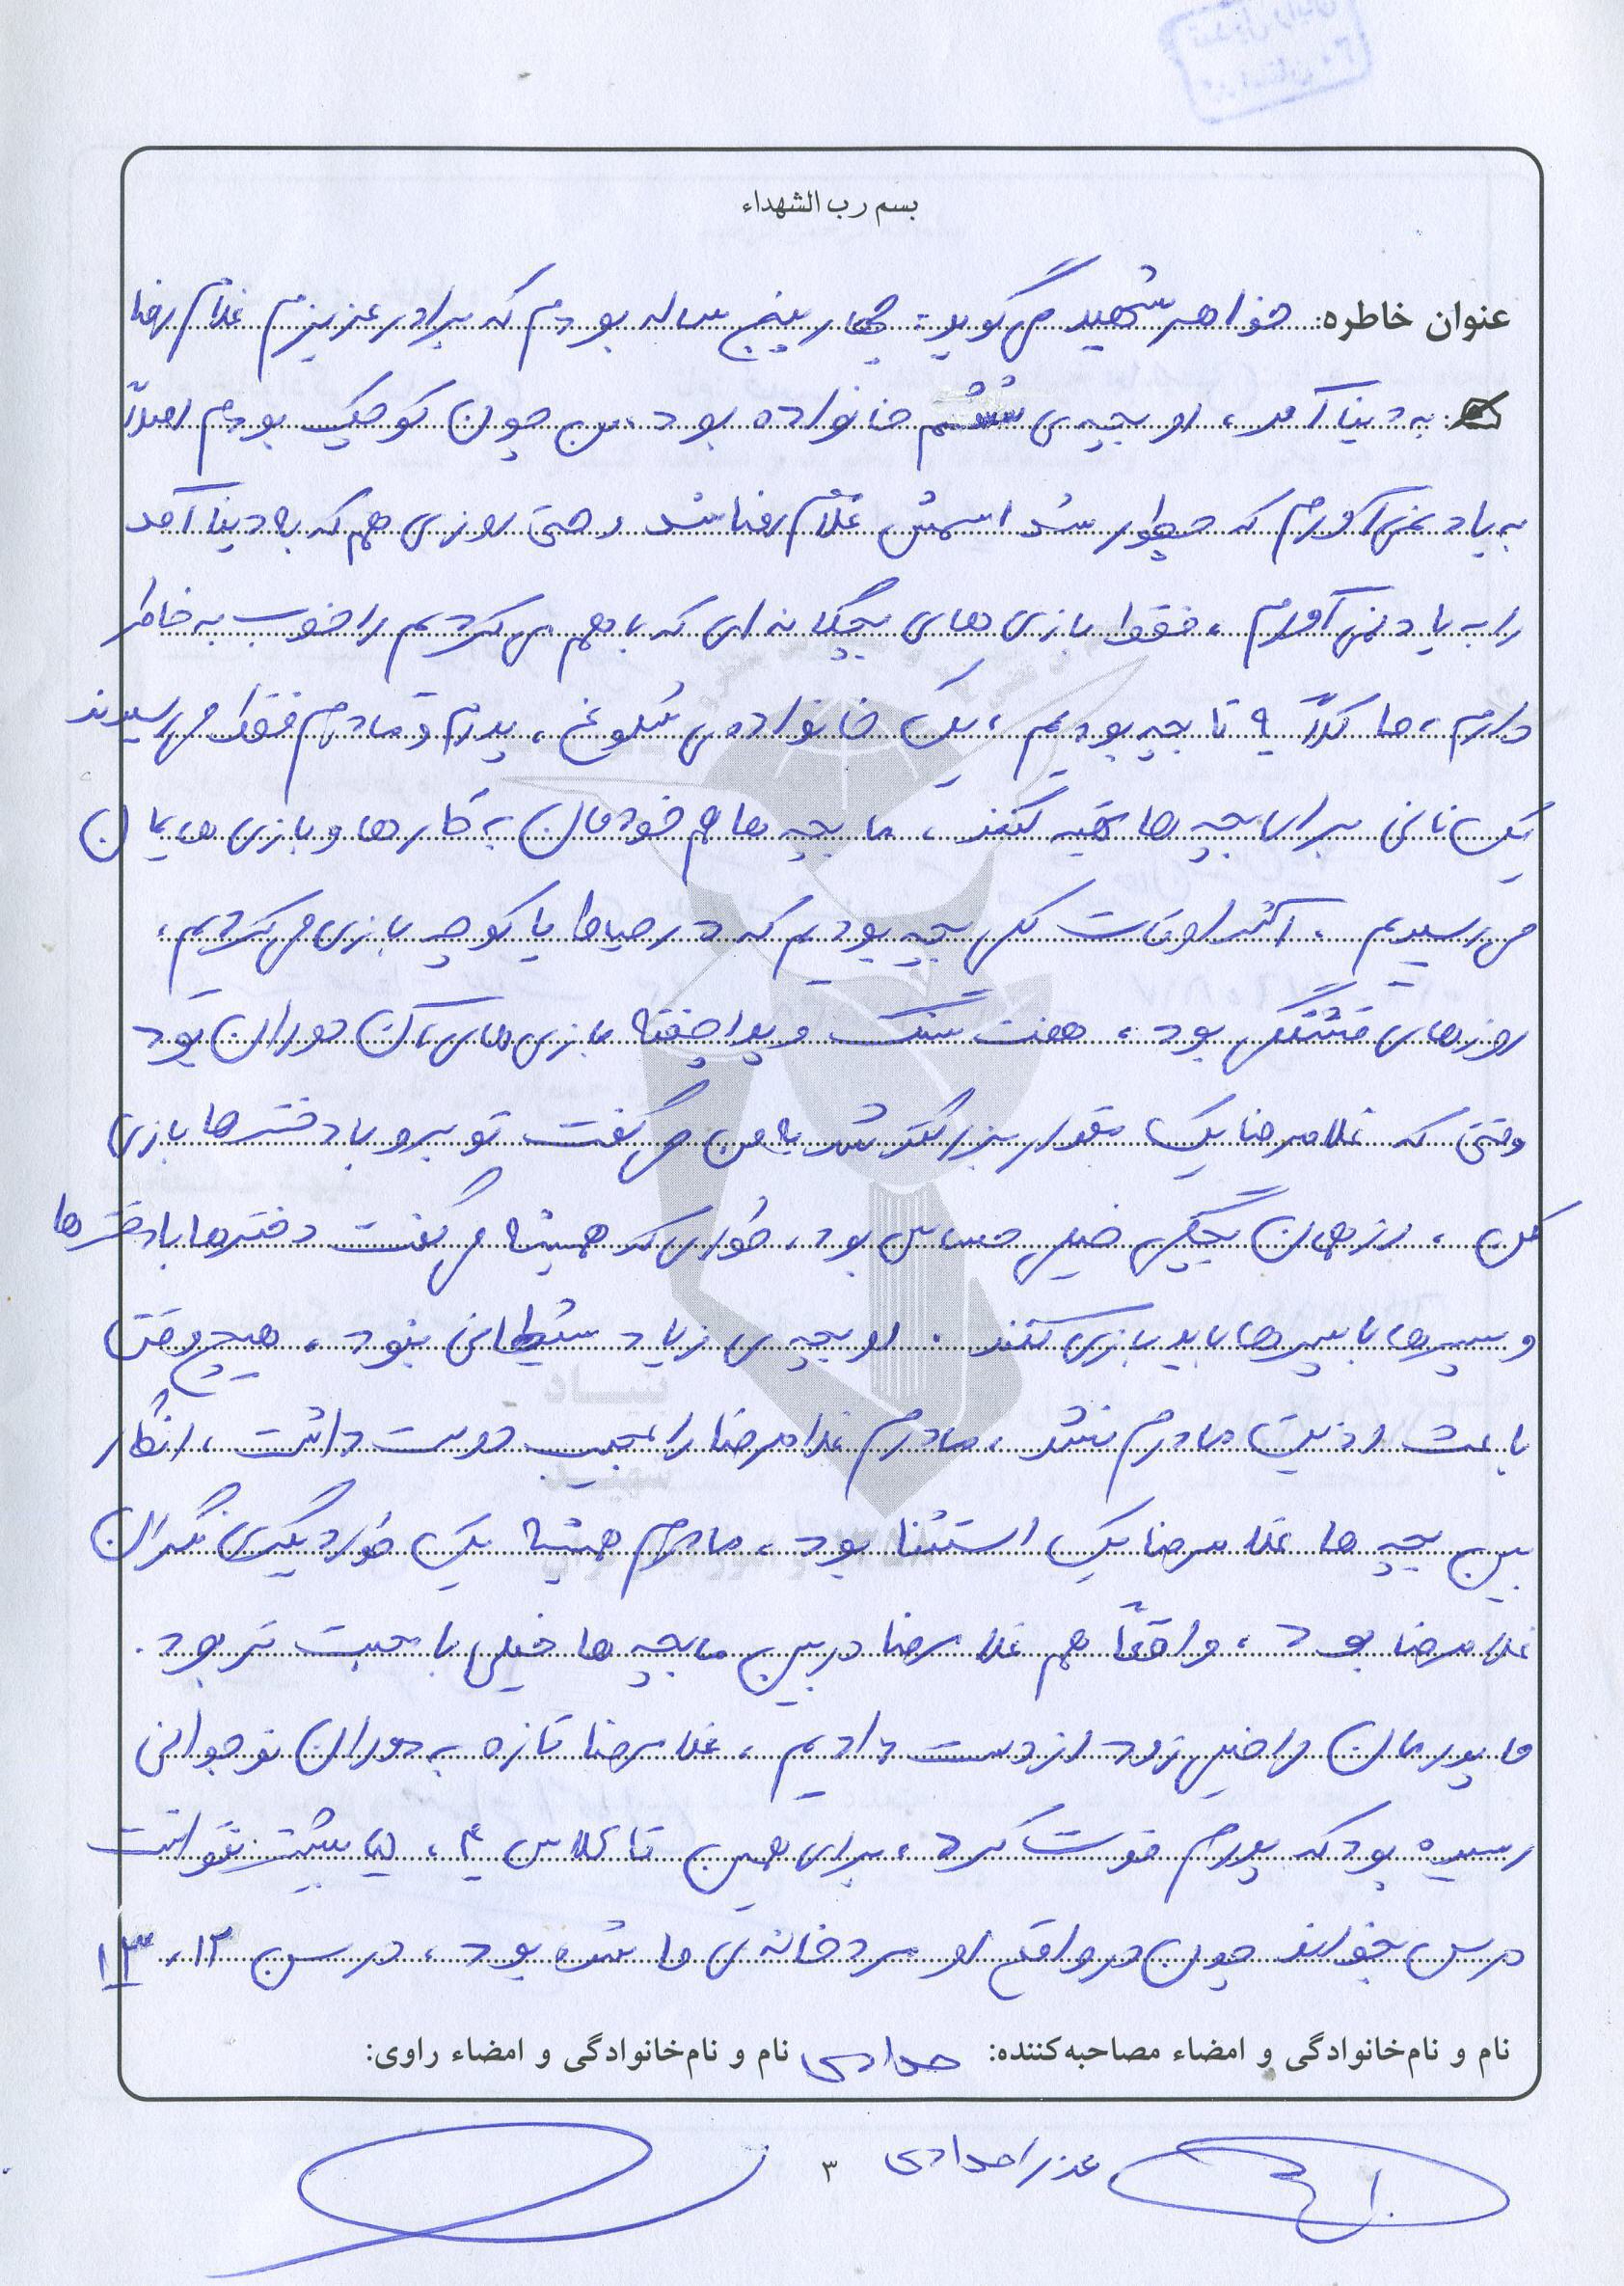 بسم رب الشهداء
عنوان خاطره: خواهر شهید می گوید: چهار پنج ساله بودم که برادر عزیزم غلام رضا
به دنیا آمد، او بچه ی ششم خانواده بود، من چون کوچک بودم اصلاً
به یاد نمی آورم که چطور شد اسمش غلام رضا شد و حتی روزی هم که به دنیا آمد
را به یاد نمی آورم، فقط بازی های بچگانه ای که با هم می کردیم را خوب به خاطر
دارم، ما کلاً ۹ تا بچه بودیم، یک خانواده ی شلوغ، پدرم و مادرم فقط می رسیدند
یک نانی برای بچه ها تهیه کنند، ما بچه ها هم خودمان به کارها و بازی هایمان
می رسیدیم، اکثر اوقات کلی بچه بودیم که در حیاط یا کوچه بازی می کردیم،
روزهای قشنگی بود، هفت سنگ و بازی های آن دوران بود
وقتی که غلامرضا یک مقدار بزرگتر شد به من می گفت تو برو با دخترها بازی
کن، از همان بچگی خیلی حساس بود، طوری که همیشه می گفت دخترها با دخترها
و پسرها با پسرها باید بازی کنند. او بچه ی زیاد شیطانی نبود، هیچ وقت
باعث اذیت مادرم نشد، مادرم غلامرضا را عجیب دوست داشت، انگار
بین بچه ها غلامرضا یک استثنا بود، مادرم همیشه یک طور دیگری نگران
غلامرضا بود، واقعاً هم غلامرضا در بین ما بچه ها خیلی با محبت تر بود.
ما پدرمان را خیلی زود از دست دادیم، غلامرضا تازه به دوران نوجوانی
رسیده بود که پدرم فوت کرد، برای همین تا کلاس ۴، ۵ بیشتر نتوانست
درس بخواند چون در واقع او مرد خانه ی ما شده بود، در سن ۱۲، ۱۳
نام و نام‌خانوادگی و امضاء مصاحبه‌کننده: حدادی نام و نام‌خانوادگی و امضاء راوی:
عذرا حدادی ۳
بنیاد
شهید